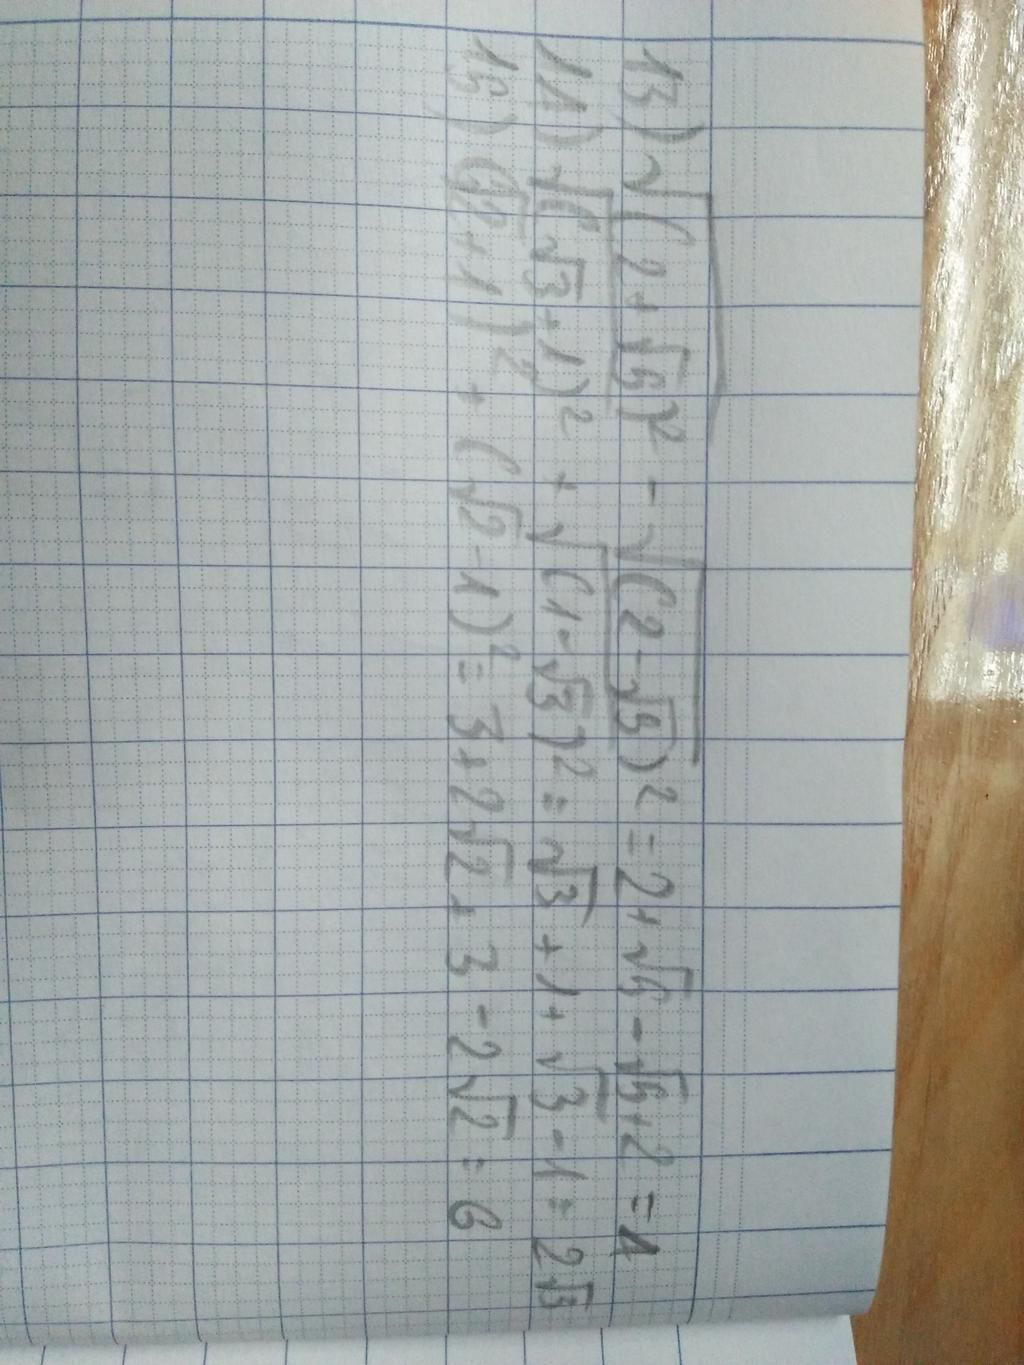 13) √(2+√5)² - √(2-√5)² = 2+√5 - √5+2 = 4
14) √(√3+1)² + √(1-√3)² = √3+1+√3-1 = 2√3
15) (√2+1)² + (√2-1)² = 3+2√2+3-2√2 = 6